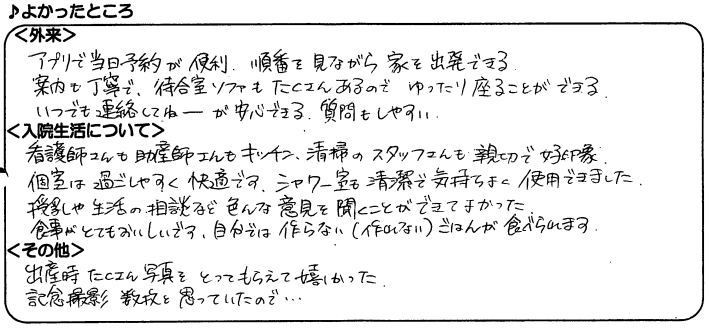 ♪よかったところ
<外来>
アプリで当日予約が便利. 順番を見ながら家を出発できる.
案内も丁寧で、待合室ソファもたくさんあるのでゆったり座ることができる.
いつでも連絡してねーが安心できる. 質問もしやすい.
<入院生活について>
看護師さんも助産師さんもキッチン、清掃のスタッフさんも親切で好印象.
個室は過ごしやすく快適です. シャワー室も清潔で気持ちよく使用できました.
授乳や生活の相談など色んな意見を聞くことができてよかった.
食事がとてもおいしいです. 自分では作らない(作れない)ごはんが食べられます.
<その他>
出産時たくさん写真をとってもらえて嬉しかった.
記念撮影 数枚と思っていたので…